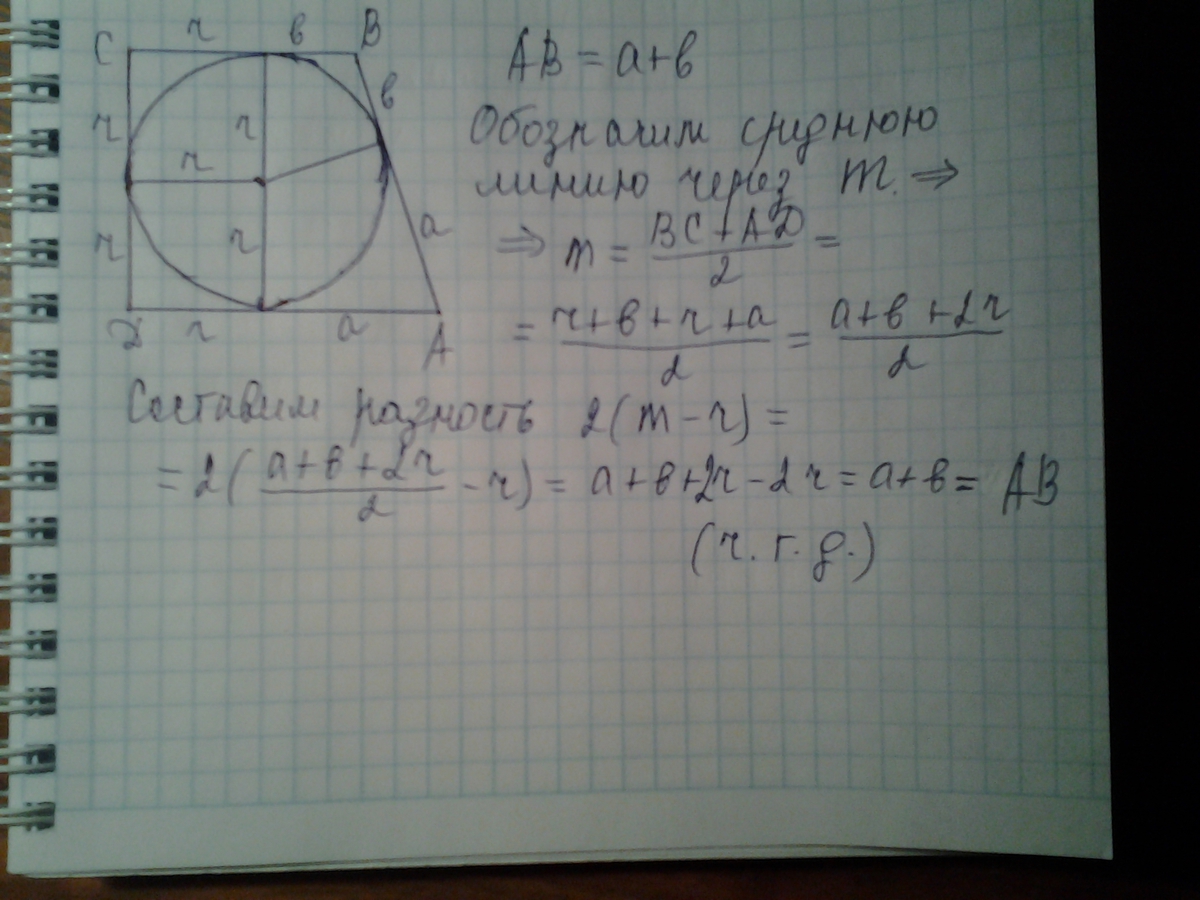 C r в B
r r в
r
r r a
D r a A
AB = a+в
Обозначим среднюю
линию через m. ⇒
⇒ m = (BC + AD)/2 =
= (r+в+r+a)/2 = (a+в+2r)/2
Составим разность 2(m-r) =
= 2((a+в+2r)/2 - r) = a+в+2r-2r = a+в = AB
(ч.т.д.)